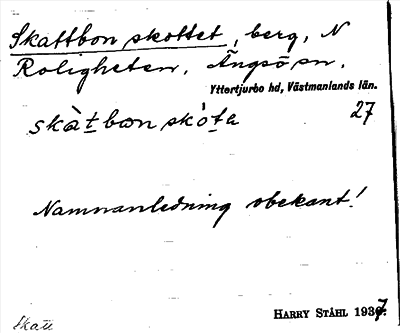 Skattbon skottet, berg, N
Roligheten, Ängsö sn.
Yttertjurbo hd, Västmanlands län.
skàt bωn skò̀ta 27
Namnanledning obekant!
HARRY STÅHL 1937.
Skatt